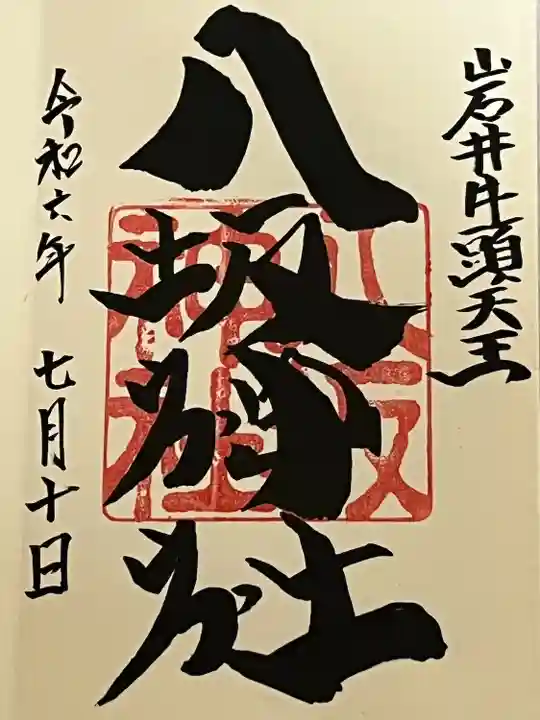 山岩井牛頭天王
八坂神社
八坂神社
令和六年 七月十日